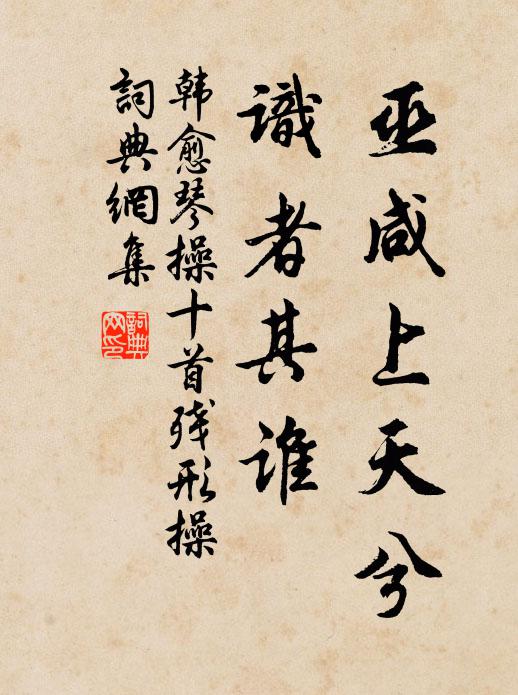 巫咸上天兮
識者其誰
韓愈琴操十首残形操
詞典網集
詞典網印